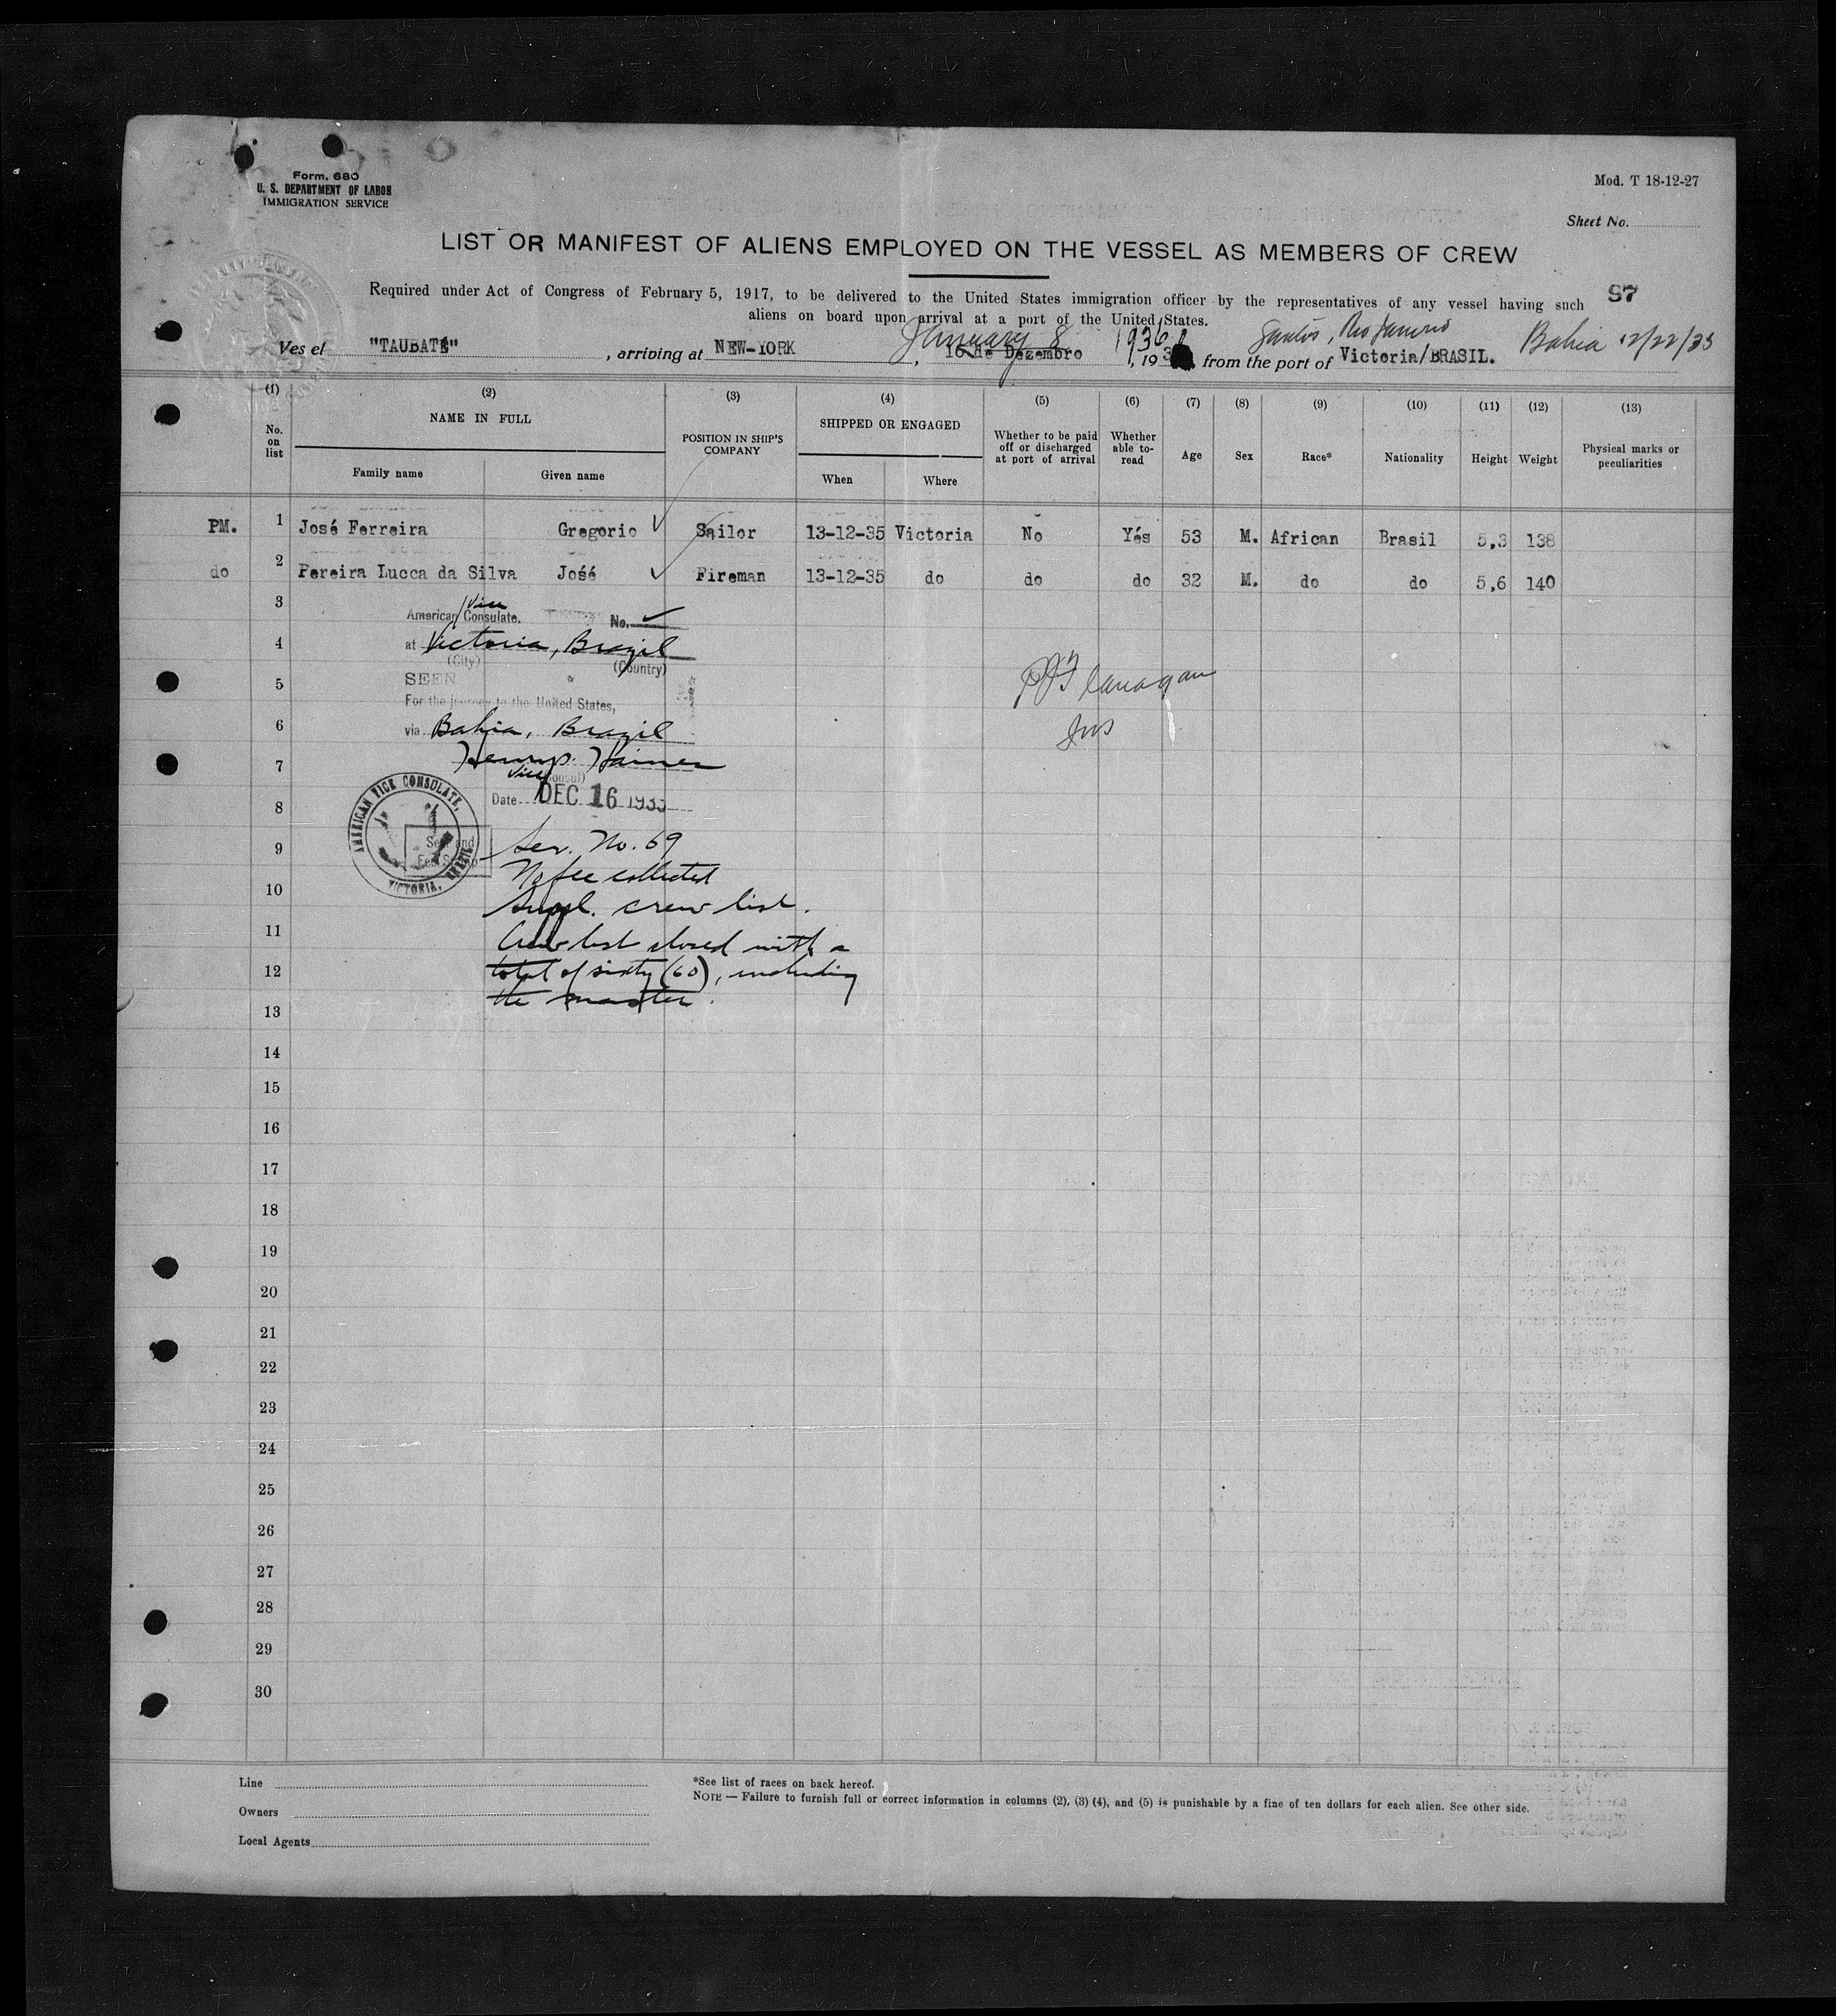 Form. 680
U. S. DEPARTMENT OF LABOR
IMMIGRATION SERVICE
Mod. T 18-12-27
Sheet No.
LIST OR MANIFEST OF ALIENS EMPLOYED ON THE VESSEL AS MEMBERS OF CREW
97
Required under Act of Congress of February 5, 1917, to be delivered to the United States immigration officer by the representatives of any vessel having such
aliens on board upon arrival at a port of the United States.
January 8 1936 Santos, Rio Janeiro Bahia 12/22/35
Ves el "TAUBATÉ" , arriving at NEW-YORK , 16 de Dezembro , 193 from the port of Victoria/BRASIL.
(1) (2) (3) (4) (5) (6) (7) (8) (9) (10) (11) (12) (13)
No. on list NAME IN FULL Family name Given name POSITION IN SHIP'S COMPANY SHIPPED OR ENGAGED When Where Whether to be paid off or discharged at port of arrival Whether able to- read Age Sex Race* Nationality Height Weight Physical marks or peculiarities
PM. 1 José Ferreira Gregorio Sailor 13-12-35 Victoria No Yés 53 M. African Brasil 5,3 138
do 2 Pereira Lucca da Silva José Fireman 13-12-35 do do do 32 M. do do 5,6 140
3
American Vice Consulate. No.
4
at Victoria, Brazil
(City) (Country)
5
SEEN
For the journey to the United States,
6
via Bahia, Brazil
7
Vice Consul)
8
Date DEC 16 1935
AMERICAN VICE CONSULATE, VICTORIA, BRAZIL
Seal and
Fee Stamp
9
Ser. No. 69
No fee collected
10
Suppl. crew list.
11
Crew list closed with a
12
total of sixty (60), including
the master.
13
14
15
16
17
18
19
20
21
22
23
24
25
26
27
28
29
30
PJ Flanagan
Ins
Line
Owners
Local Agents
*See list of races on back hereof.
NOTE — Failure to furnish full or correct information in columns (2), (3) (4), and (5) is punishable by a fine of ten dollars for each alien. See other side.